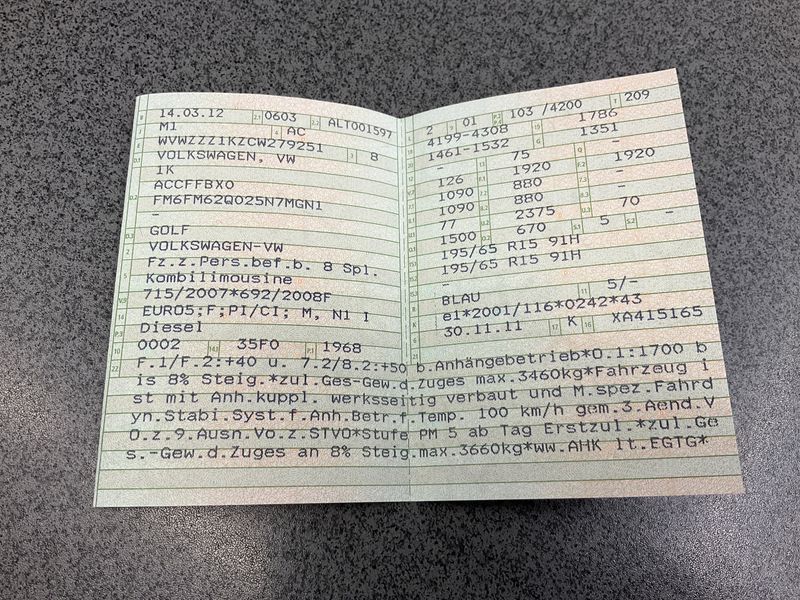 14.03.12 0603 ALT001597
M1 AC
WVWZZZ1KZCW279251 8
VOLKSWAGEN, VW
1K
ACCFFBX0
FM6FM62Q025N7MGN1
-
GOLF
VOLKSWAGEN-VW
Fz.z.Pers.bef.b. 8 Spl.
Kombilimousine
715/2007*692/2008F
EURO5;F;PI/CI; M, N1 I
Diesel
0002 35F0 1968
2 01 103 /4200 209
4199-4308 1786
1461-1532 1351
- 75 -
126 1920 1920
1090 880 -
1090 880 -
77 2375 70
1500 670 5 -
195/65 R15 91H
195/65 R15 91H
-
BLAU 5/-
e1*2001/116*0242*43
30.11.11 K XA415165
F.1/F.2:+40 u. 7.2/8.2:+50 b.Anhängebetrieb*O.1:1700 b
is 8% Steig.*zul.Ges-Gew.d.Zuges max.3460kg*Fahrzeug i
st mit Anh.kuppl. werksseitig verbaut und M.spez.Fahrd
yn.Stabi.Syst.f.Anh.Betr.f.Temp. 100 km/h gem.3.Aend.V
O.z.9.Ausn.Vo.z.STVO*Stufe PM 5 ab Tag Erstzul.*zul.Ge
s.-Gew.d.Zuges an 8% Steig.max.3660kg*ww.AHK lt.EGTG*